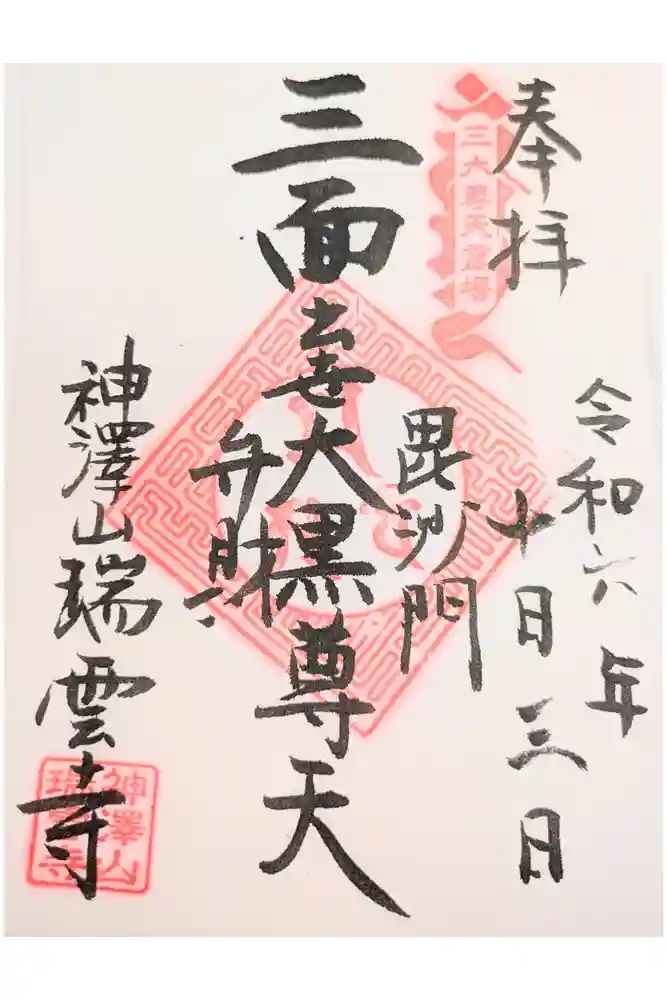 奉拝
三大尊天霊場
令和六年
十月三日
毘沙門
三面出世大黒尊天
弁財
神澤山瑞雲寺
神澤山
瑞雲寺